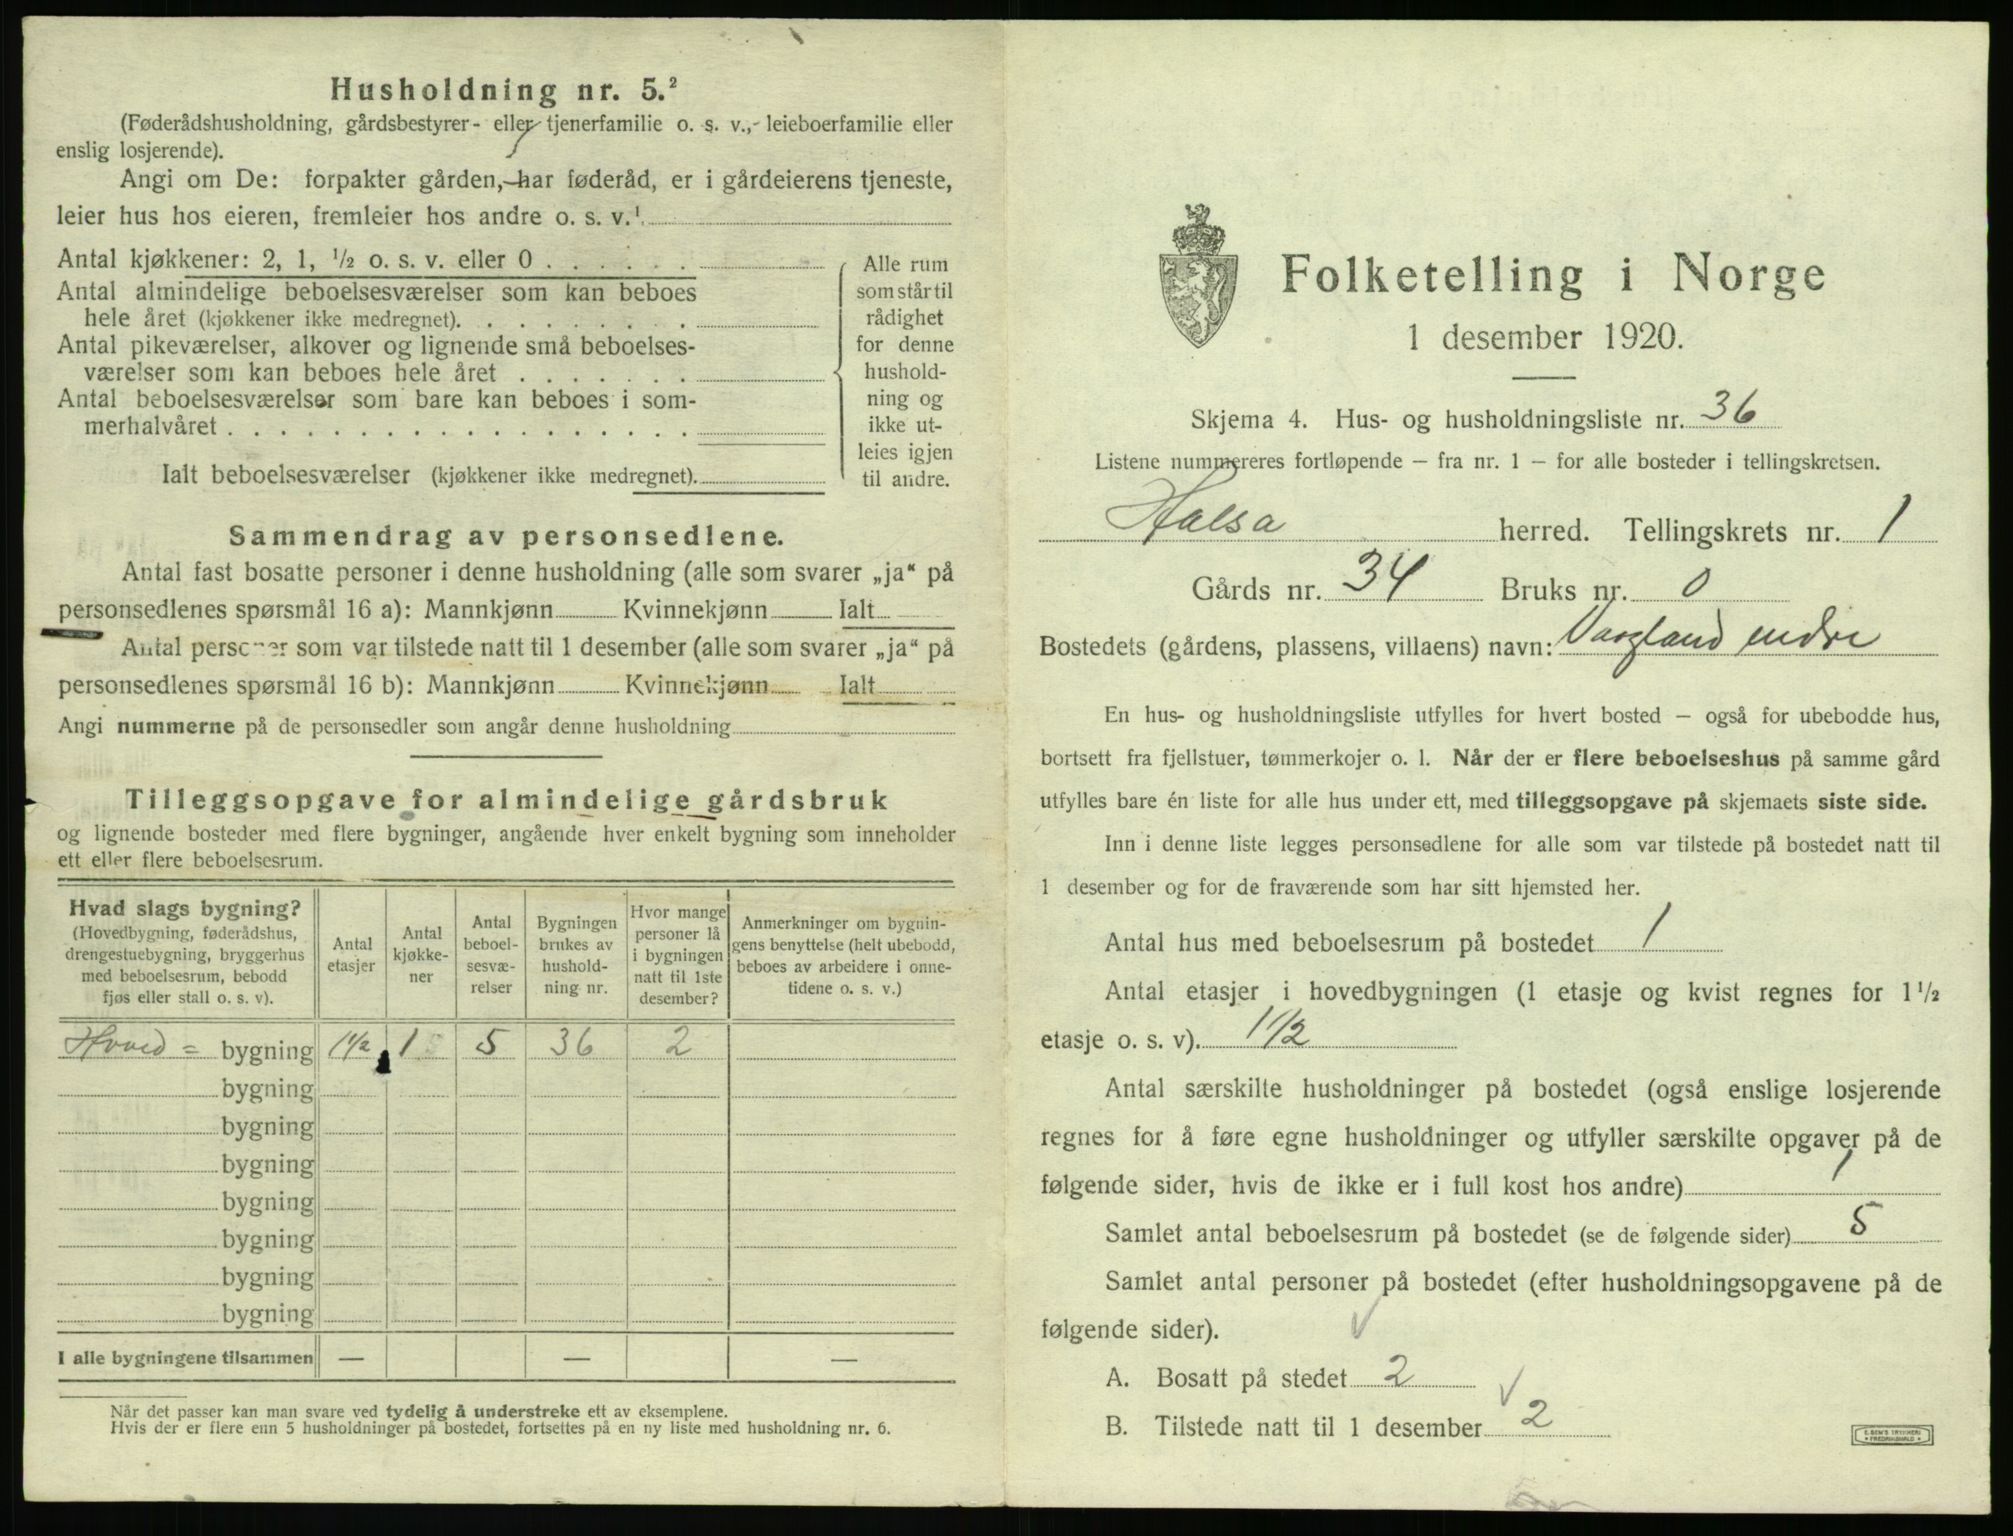 Husholdning nr. 5.²
(Føderådshusholdning, gårdsbestyrer- eller tjenerfamilie o. s. v., leieboerfamilie eller
enslig losjerende).
Angi om De: forpakter gården, har føderåd, er i gårdeierens tjeneste,
leier hus hos eieren, fremleier hos andre o. s. v.¹
Antal kjøkkener: 2, 1, ½ o. s. v. eller 0
Antal almindelige beboelsesværelser som kan beboes
hele året (kjøkkener ikke medregnet).
Antal pikeværelser, alkover og lignende små beboelses-
værelser som kan beboes hele året
Antal beboelsesværelser som bare kan beboes i som-
merhalvåret
Ialt beboelsesværelser (kjøkkener ikke medregnet).
Alle rum
som står til
rådighet
for denne
hushold-
ning og
ikke ut-
leies igjen
til andre.
Sammendrag av personsedlene.
Antal fast bosatte personer i denne husholdning (alle som svarer „ja“ på
personsedlenes spørsmål 16 a): Mannkjønn Kvinnekjønn Ialt
Antal personer som var tilstede natt til 1 desember (alle som svarer „ja“ på
personsedlenes spørsmål 16 b): Mannkjønn Kvinnekjønn Ialt
Angi nummerne på de personsedler som angår denne husholdning
Tilleggsopgave for almindelige gårdsbruk
og lignende bosteder med flere bygninger, angående hver enkelt bygning som inneholder
ett eller flere beboelsesrum.
Hvad slags bygning?
(Hovedbygning, føderådshus,
drengestuebygning, bryggerhus
med beboelsesrum, bebodd
fjøs eller stall o. s. v).
Antal
etasjer
Antal
kjøkke-
ner
Antal
beboel-
sesvæ-
relser
Bygningen
brukes av
hushold-
ning nr.
Hvor mange
personer lå
i bygningen
natt til 1ste
desember?
Anmerkninger om bygnin-
gens benyttelse (helt ubebodd,
beboes av arbeidere i onne-
tidene o. s. v.)
Hoved = bygning 1½ 1 5 36 2
bygning
bygning
bygning
bygning
bygning
bygning
bygning
I alle bygningene tilsammen — — —
Når det passer kan man svare ved tydelig å understreke ett av eksemplene.
Hvis der er flere enn 5 husholdninger på bostedet, fortsettes på en ny liste med husholdning nr. 6.
Folketelling i Norge
1 desember 1920.
Skjema 4. Hus- og husholdningsliste nr. 36
Listene nummereres fortløpende — fra nr. 1 — for alle bosteder i tellingskretsen.
Halsa herred. Tellingskrets nr. 1
Gårds nr. 34 Bruks nr. 0
Bostedets (gårdens, plassens, villaens) navn: Vaagland indre
En hus- og husholdningsliste utfylles for hvert bosted — også for ubebodde hus,
bortsett fra fjellstuer, tømmerkojer o. l. Når der er flere beboelseshus på samme gård
utfylles bare én liste for alle hus under ett, med tilleggsopgave på skjemaets siste side.
Inn i denne liste legges personsedlene for alle som var tilstede på bostedet natt til
1 desember og for de fraværende som har sitt hjemsted her.
Antal hus med beboelsesrum på bostedet 1
Antal etasjer i hovedbygningen (1 etasje og kvist regnes for 1½
etasje o. s. v). 1½
Antal særskilte husholdninger på bostedet (også enslige losjerende
regnes for å føre egne husholdninger og utfyller særskilte opgaver på de
følgende sider, hvis de ikke er i full kost hos andre) 1
Samlet antal beboelsesrum på bostedet (se de følgende sider) 5
Samlet antal personer på bostedet (efter husholdningsopgavene på de
følgende sider).
A. Bosatt på stedet 2
B. Tilstede natt til 1 desember 2
E. SEM'S TRYKKERI
FREDRIKSHALD